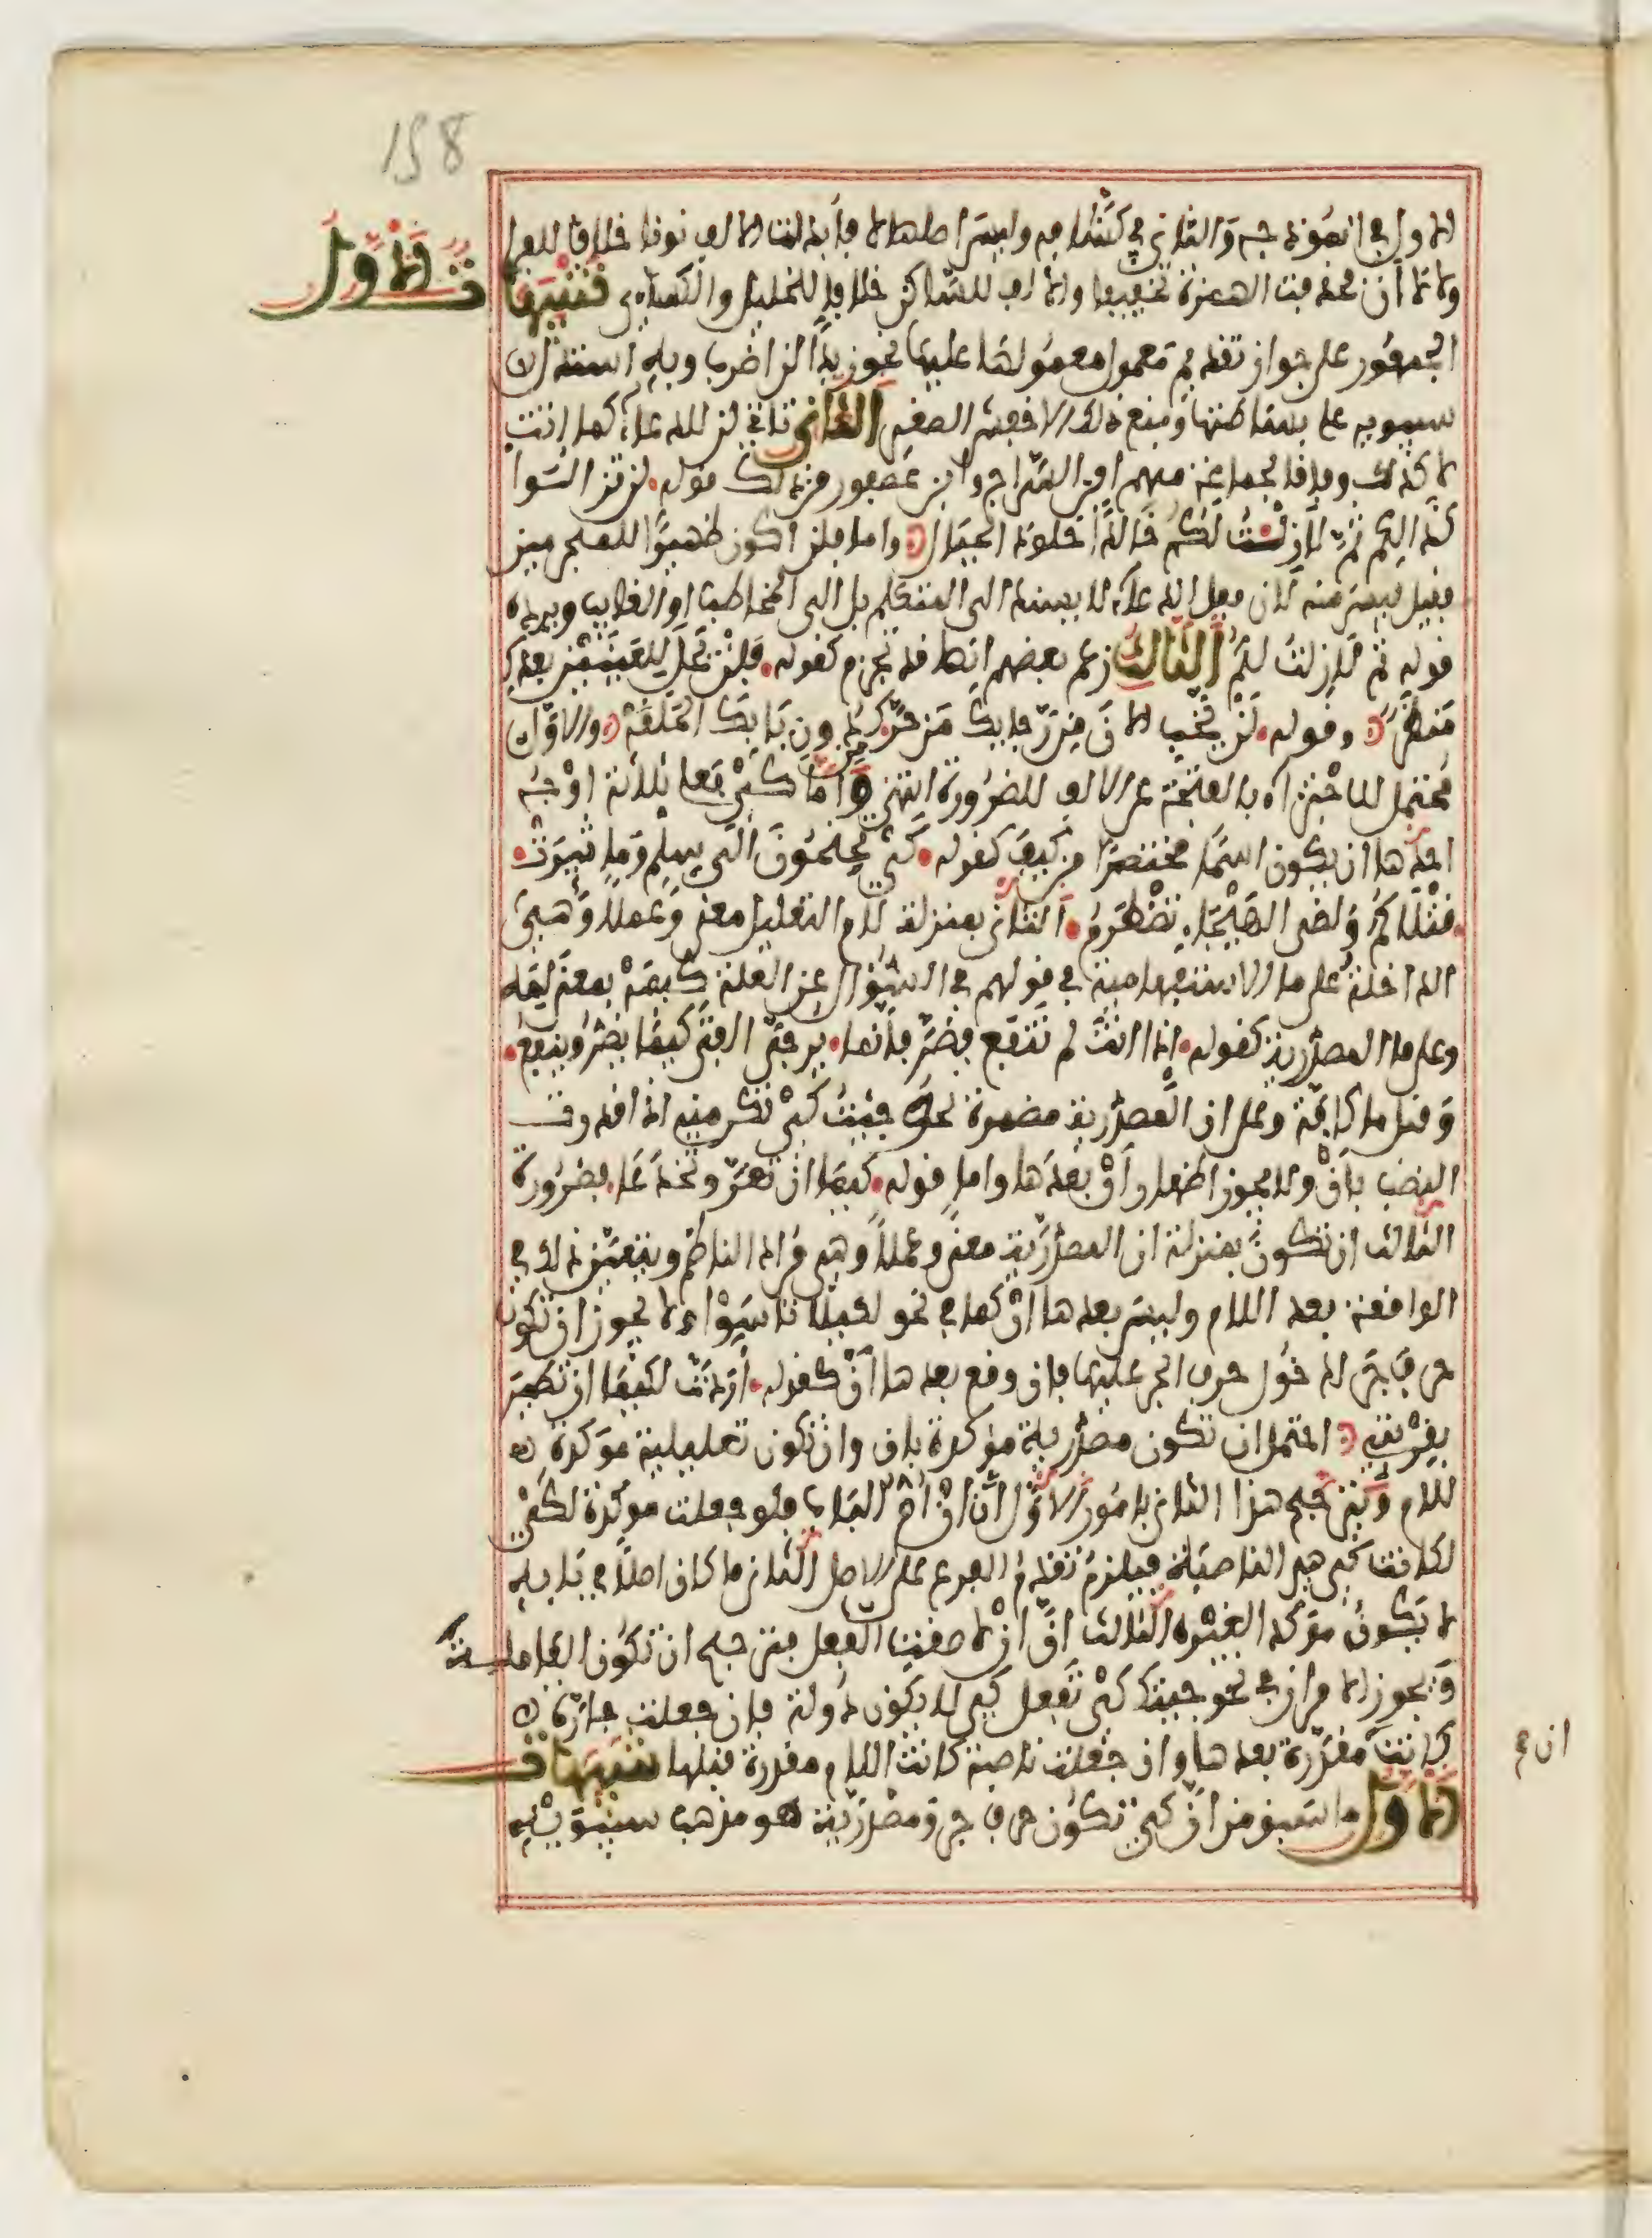 158
الاول في انموذجه والثاني في كشافه وليس اصلها لا فابدلت الالف نونا خلافا للفرا
ولا لا ان فحذفت الهمزة تخفيفا والالف للساكن خلافا للخليل والكساءي تنبيهات الاول
الجمهور على جواز تقديم معمول معمولها عليها نحو زيدا لن اضرب وبه استدل
سيبويه على بساطتها ومنع ذلك الاخفش الصغير الثاني تاتي لن للدعاء كما اتت
لا كذلك وفاقا لجماعة منهم ابن السراج وابن عصفور من ذلك قوله لن تزالوا
كذالكم ثم لا زلت لكم خالدا خلود الجبال واما فلن اكون ظهيرا للمجرمين
فقيل ليس منه لان فعل الدعاء لا يسند الى المتكلم بل الى المخاطب او الغايب ويرده
قوله ثم لا زلت لكم الثالث زعم بعضهم انها قد تجزم كقوله فلن يحل للعينين بعدك
منظر وقوله لن يخب الان من رجايك من حرك من دون بابك الحلقة والاول
محتمل للاجتزاء بالفتحة عن الالف للضرورة انتهى واما كي فعلى ثلاثة اوجه
احدها ان يكون اسما مختصرا من كيف كقوله كي تجنحون الى سلم وما ثيرت
قتلاكم ولضى الهيجاء تضطرم الثاني بمنزلة لام التعليل معنى وعملا وهي
الداخلة على ما الاستفهامية في قولهم في السؤال عن العلة كيمه بمعنى لمه
وعلى ما المصدرية كقوله اذا انت لم تنفع فضر فانما يرجى الفتى كيما يضر وينفع
وقيل ما كافة وعلى ان المصدرية مضمرة نحو جيت كي تكرمني اذا قدرت
النصب بان ولا يجوز اظهار ان بعدها واما قوله كيما ان تغر وتخدعا فضرورة
الثالث ان تكون بمنزلة ان المصدرية معنى وعملا وهي مراد الناظم ويتعين ذلك في
الواقعة بعد اللام وليس بعدها ان كما في نحو لكيلا تاسوا ولا يجوز ان تكون
حرف جر لدخول حرف الجر عليها فان وقع بعدها ان كقوله اردت لكيما ان تطير
بقربتي احتمل ان تكون مصدرية موكدة بان وان تكون تعليلية موكدة
للام ويترجح هذا الثاني بامور الاول ان ان ام الباب فلو جعلت موكدة لكي
لكانت كي هي الناصبة فيلزم تقديم الفرع على الاصل الثاني ما كان اصلا في بابه
لا يكون موكدا لغيره الثالث ان ان لاصقت الفعل فيترجح ان تكون العاملة
ويجوز الامران في نحو جيتك كي تفعل كي لا يكون دولة فان جعلت جارة
كانت مقدرة بعدها وان جعلت ناصبة كانت اللام مقدرة قبلها تنبيهات
ان ع
الاول ما سبق من ان كي تكون حرف جر ومصدرية هو مذهب سيبويه